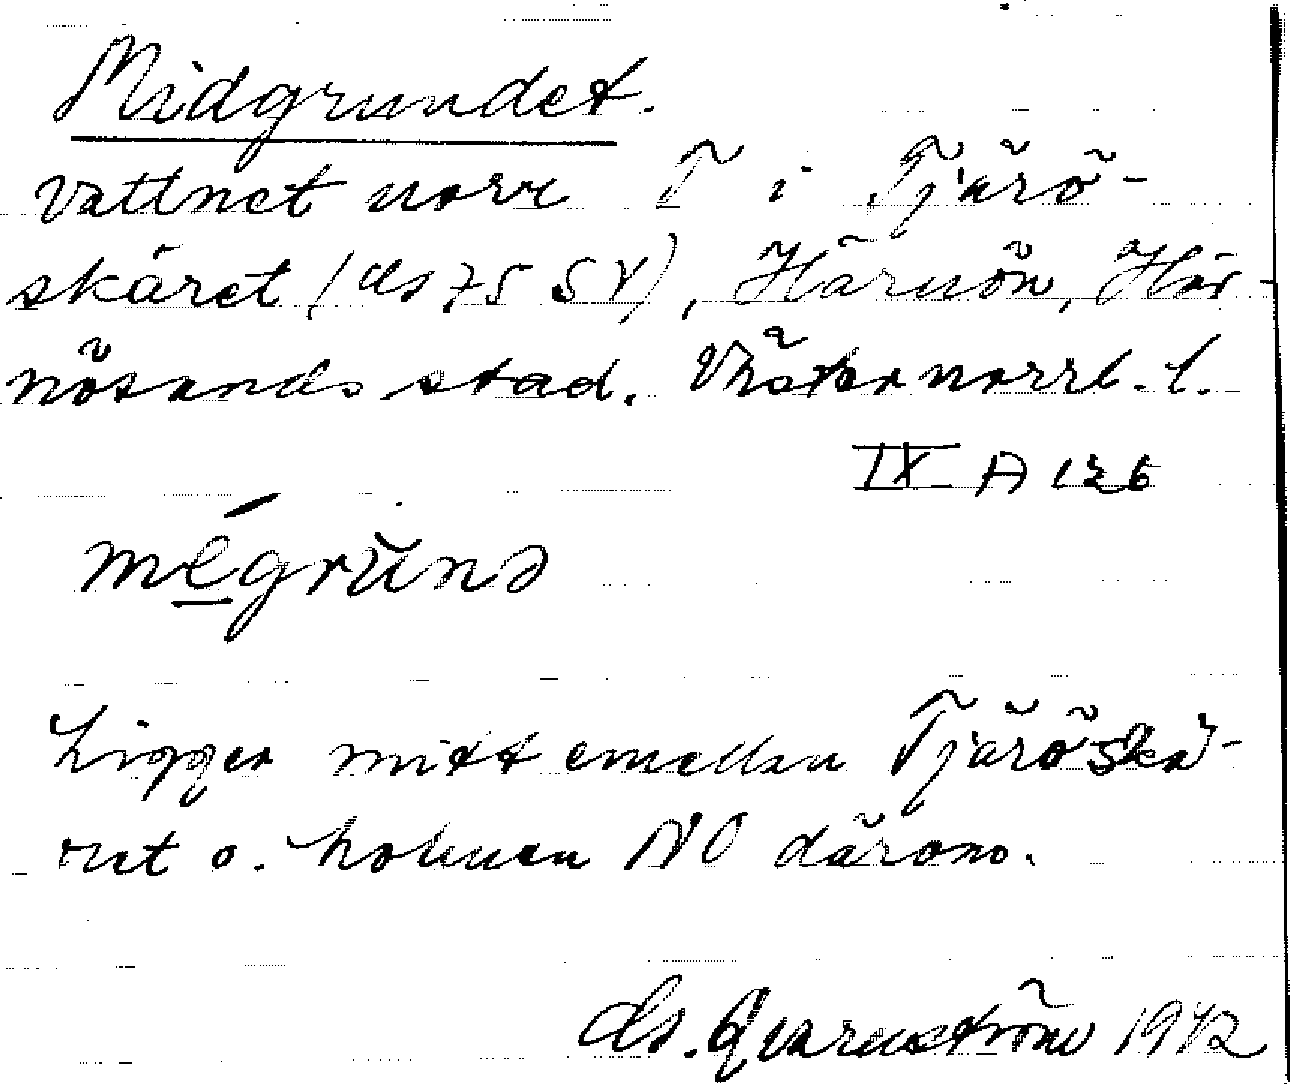 Midgrundet.
vattnet norr T i Tjärö-
skäret ( 75 SV), Härnön, Här-
nösands stad. Västernorrl. l.
IX A 126
mégrŭnd
Ligger mitt emellan Tjäröskä-
ret o. holmen NO därom.
Qvarnström 1942